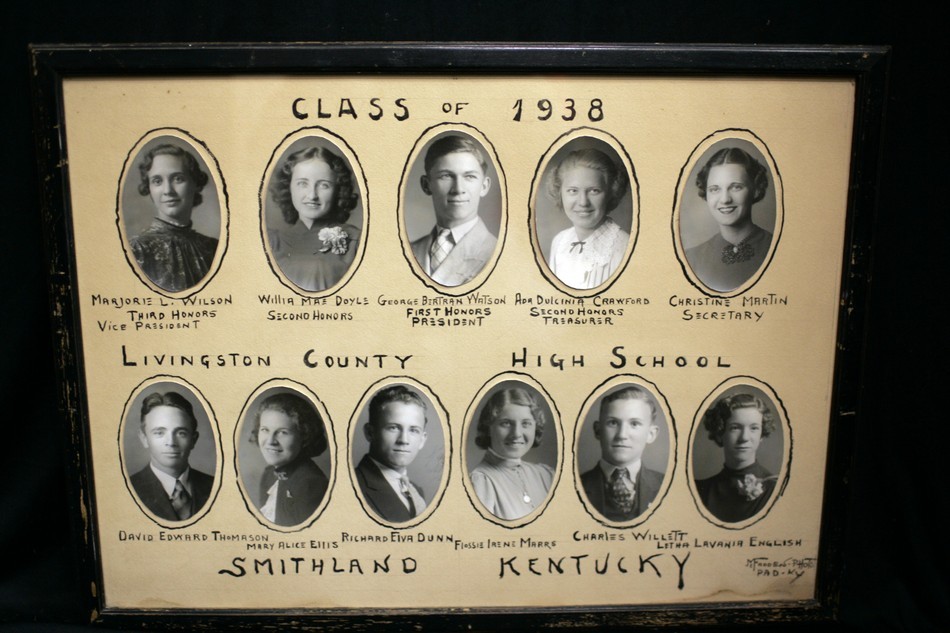 CLASS OF 1938
MARJORIE L. WILSON
THIRD HONORS
VICE PRESIDENT
WILLIA MAE DOYLE
SECOND HONORS
GEORGE BERTRAN WATSON
FIRST HONORS
PRESIDENT
ADA DULCINIA CRAWFORD
SECOND HONORS
TREASURER
CHRISTINE MARTIN
SECRETARY
LIVINGSTON COUNTY HIGH SCHOOL
DAVID EDWARD THOMASON
MARY ALICE ELLIS
RICHARD ELVA DUNN
FLOSSIE IRENE MARRS
CHARLES WILLETT
LETHA LAVANIA ENGLISH
SMITHLAND KENTUCKY
PHOTO
PAD-KY